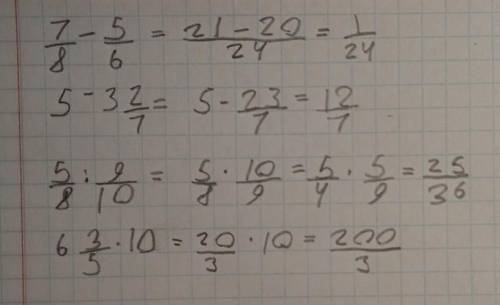 7/8 - 5/6 = 21-20/24 = 1/24
5 - 3 2/7 = 5 - 23/7 = 12/7
5/8 : 9/10 = 5/8 · 10/9 = 5/4 · 5/9 = 25/36
6 3/5 · 10 = 20/3 · 10 = 200/3